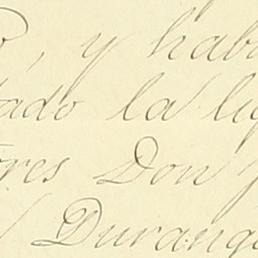 , y hab
tado la li
res Don
Durang